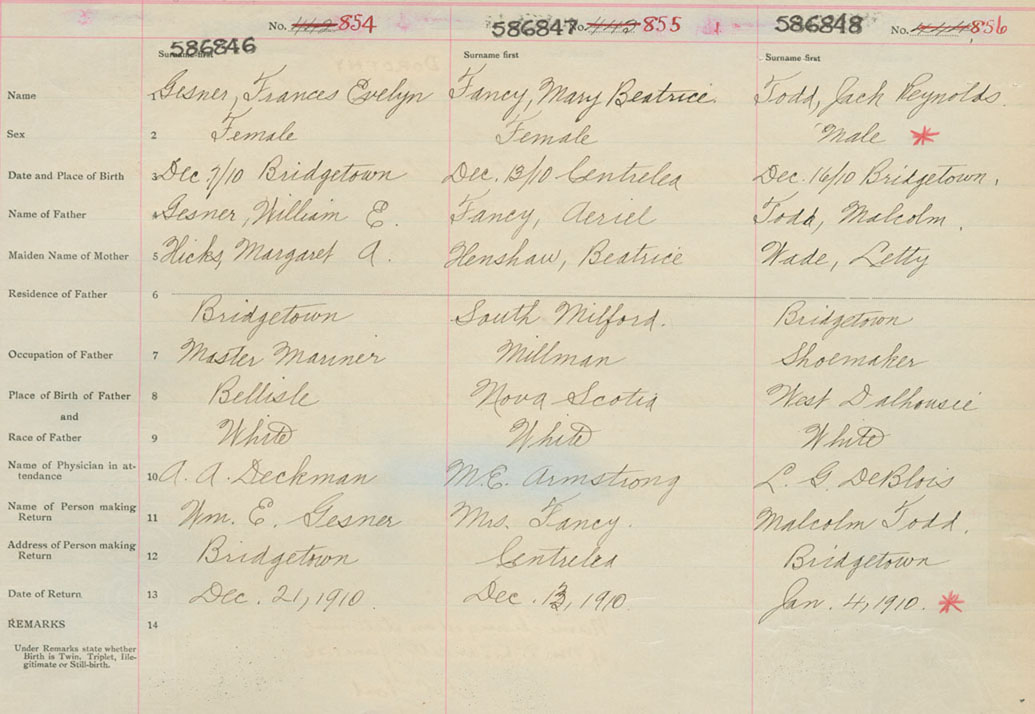 586846 No. 442 854
586847 No. 443 855
586848 No. 444 856
Surname first Surname first Surname first
Name 1 Gesner, Frances Evelyn Fancy, Mary Beatrice. Todd, Jack Reynolds.
Sex 2 Female Female Male *
Date and Place of Birth 3 Dec 7/10 Bridgetown Dec. 13/10 Centrelea Dec. 16/10 Bridgetown.
Name of Father 4 Gesner, William E. Fancy, Aeriel Todd, Malcolm.
Maiden Name of Mother 5 Hicks, Margaret A. Henshaw, Beatrice Wade, Letty
Residence of Father 6
Bridgetown South Milford. Bridgetown
Occupation of Father 7 Master Mariner Millman Shoemaker
Place of Birth of Father 8 Bellisle Nova Scotia West Dalhousie
and
Race of Father 9 White White White
Name of Physician in at-
tendance 10 A. A. Deckman M.E. Armstrong L. G. DeBlois
Name of Person making
Return 11 Wm. E. Gesner Mrs. Fancy. Malcolm Todd.
Address of Person making
Return 12 Bridgetown Centrelea Bridgetown
Date of Return 13 Dec. 21, 1910. Dec. 13, 1910. Jan. 4, 1910. *
REMARKS 14
Under Remarks state whether
Birth is Twin, Triplet, Ille-
gitimate or Still-birth.